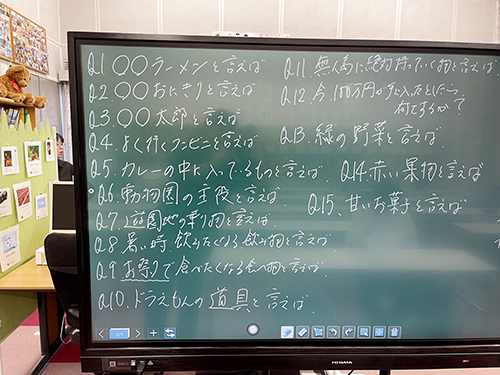 Q1. ○○ラーメンと言えば
Q2. ○○おにぎりと言えば
Q3 ○○太郎と言えば
Q4. よく行くコンビニと言えば
Q5. カレーの中に入ってるものと言えば
Q6. 動物園の主役と言えば
Q7. 遊園地の乗り物と言えば
Q8 暑い時 飲みたくなる飲み物と言えば
Q9 お祭りで食べたくなる食べ物と言えば
Q10. ドラえもんの道具と言えば
Q11. 無人島に絶対持っていく物と言えば
Q12. 今、100万円が手に入ったとしたら、
何をするか?
Q13. 緑の野菜と言えば
Q14. 赤い果物と言えば
Q15. 甘いお菓子と言えば
1/1
I-O DATA